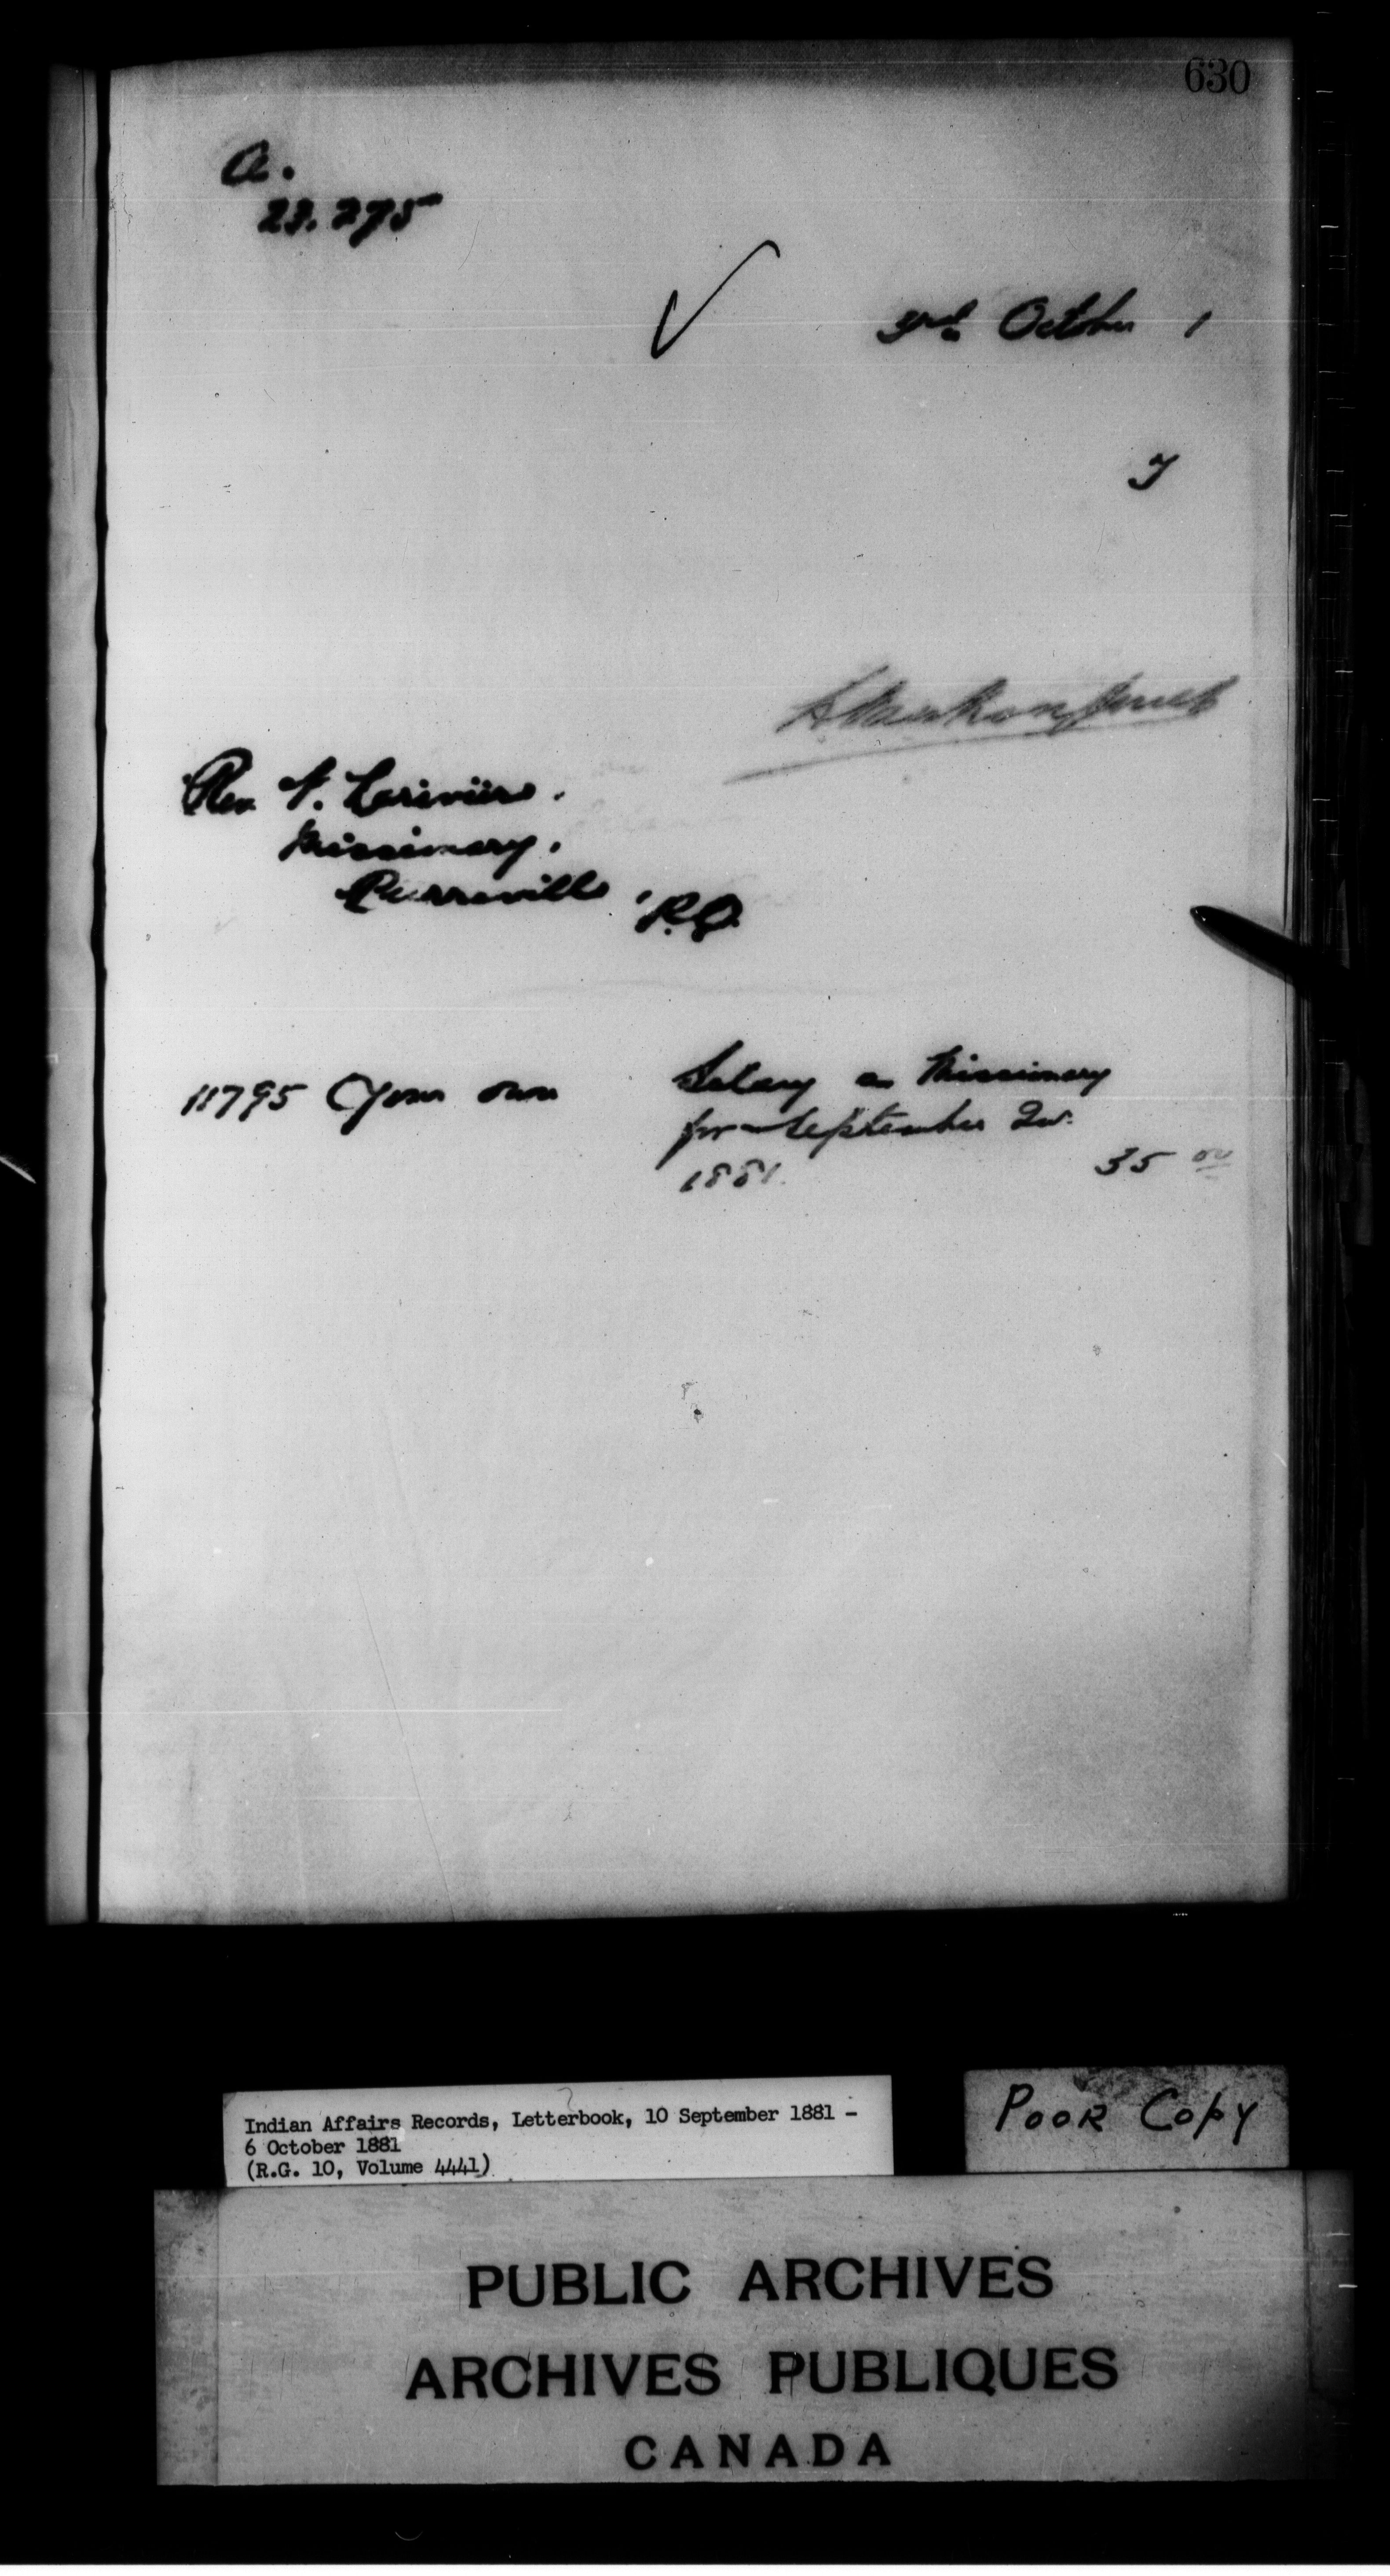 630
a.
23.275
3rd October 1
Rev.
Missionary,
Pierreville, P.Q.
11795 Your own Salary as Missionary
for September Qr.
1881. 35 00
Indian Affairs Records, Letterbook, 10 September 1881 -
6 October 1881
(R.G. 10, Volume 4441)
POOR Copy
PUBLIC ARCHIVES
ARCHIVES PUBLIQUES
CANADA